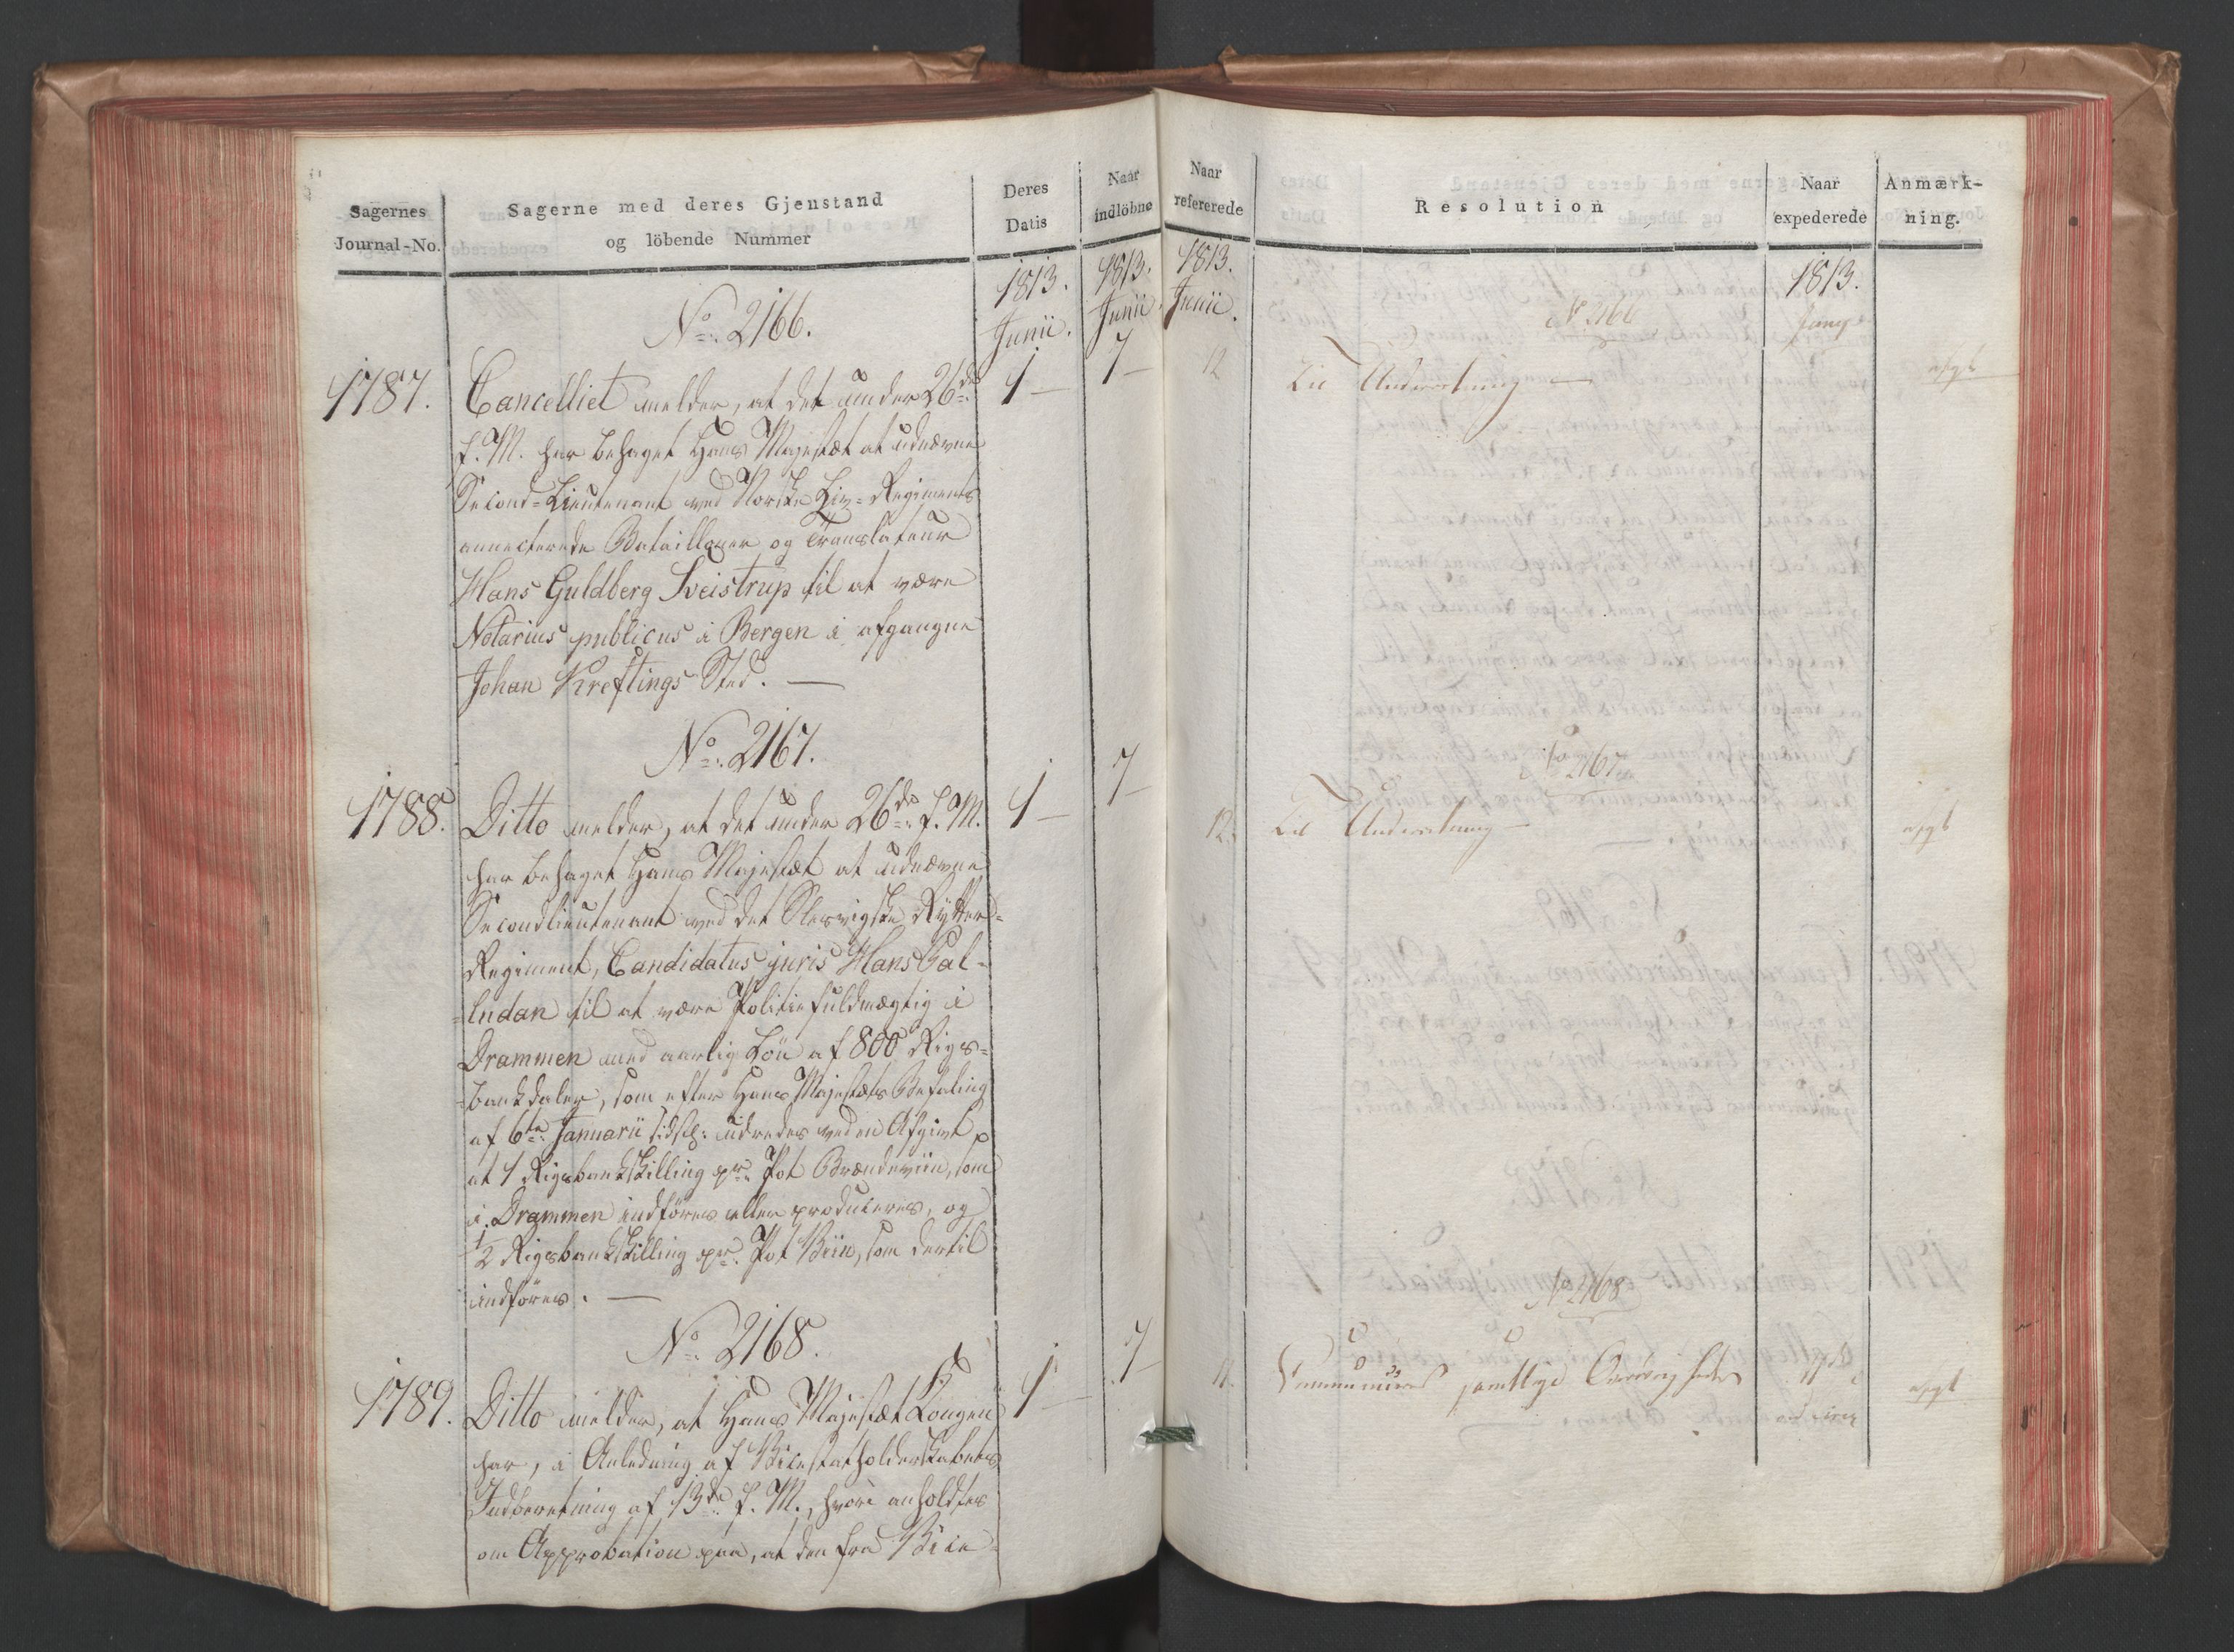 Sagernes
Journal-No.
Sagerne med deres Gjenstand
og löbende Nummer
Deres
Datis
Naar
indlöbne
1813.
Junii.
1813.
Junii
No. 2166.
1787.
Cancelliet melder, at det under 26de
f. M. har behaget Hans Majestæt at udnævne
Second-Lieutenant ved Norske Liv-Regiments
annecterede Batailloner og Translateur
Hans Guldberg Sveistrup til at være
Notarius publicus i Bergen i afgangne
Johan Kreftings Sted. —
1 —
7 —
No. 2167.
1788.
Ditto melder, at det under 26de f. M.
har behaget Hans Majestæt at udnævne
Secondlieutenant ved det Slesvigske Rytter-
Regiment, Candidatus juris Hans Pal-
-ludan til at være Politiefuldmægtig i
Drammen med aarlig Lön af 800 Rigs-
-bankdaler, som efter Hans Majestæts Befaling
af 6te Januarii sidstl: udredes ved en Afgivt
at 1 Rigsbankskilling pr. Pot Brændeviin, som
i Drammen indföres eller produceres, og
1/2 Rigsbankskilling pr. Pot Viin, som dertil
indföres. —
1 —
7 —
No. 2168.
1789.
Ditto melder, at Hans Majestæt Kongen
har, i Anledning af Vicestatholderskabets
Indberetning af 13de f. M., hvori anholdtes
om Approbation paa, at den fra Vice-
1 —
7 —
Naar
refererede
Resolution
Naar
expederede
Anmærk-
ning.
1813.
Junii.
1813.
No 2166
12
Til Underretning —
afgt
No 2167
12.
Til Underretning —
afgt
No 2168
11.
Communiceres samtlige Övrigheder
17
afgt